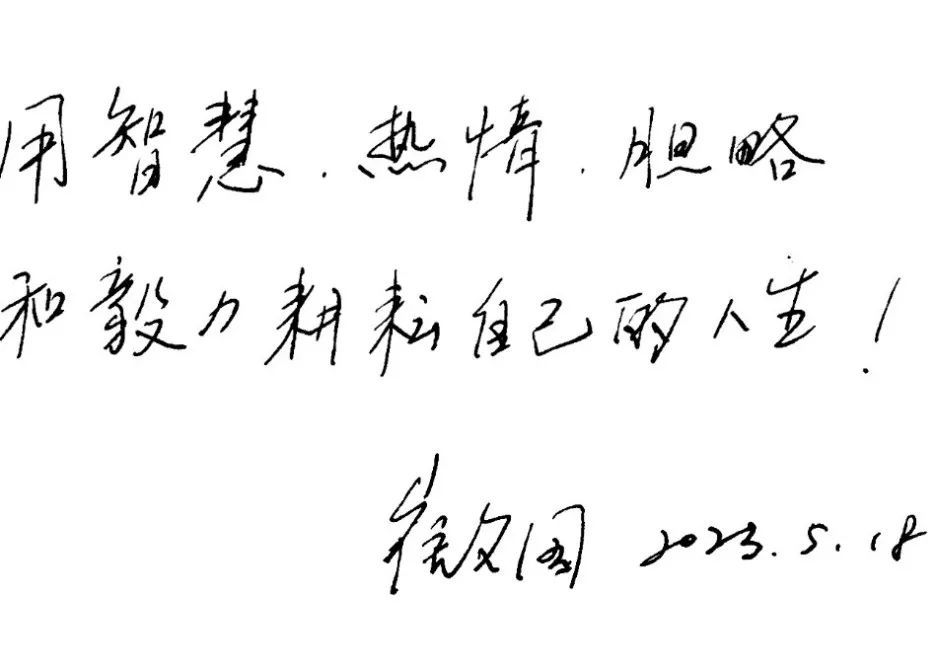 用智慧.热情.胆略
和毅力耕耘自己的人生!
2023.5.18